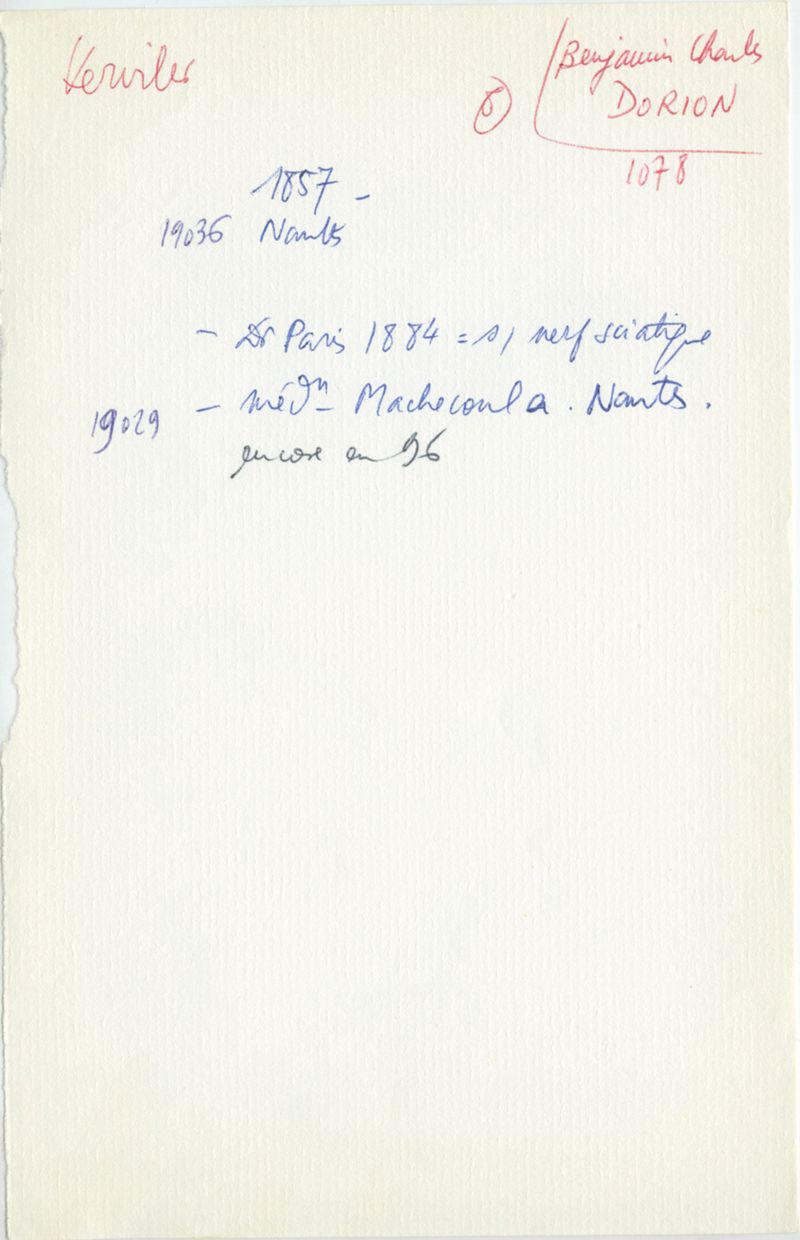 Kerviler
Benjamin Charles
⑥ DORION
1078
1857 -
19036 Nantes
- Dr Paris 1884 = s/ nerf sciatique
19029 - médn Machecoul a. Nantes.
encore en 96